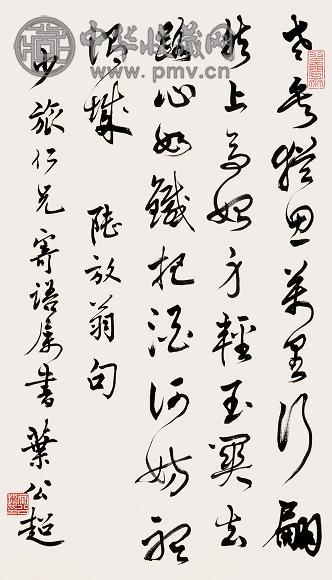 中华收藏网
www.pmv.cn
老矣猶思萬里行翩
然上馬始身輕玉關去
路心如鐵把酒何妨聽
渭城 陸放翁句
少旅仁兄寄語屬書 葉公超